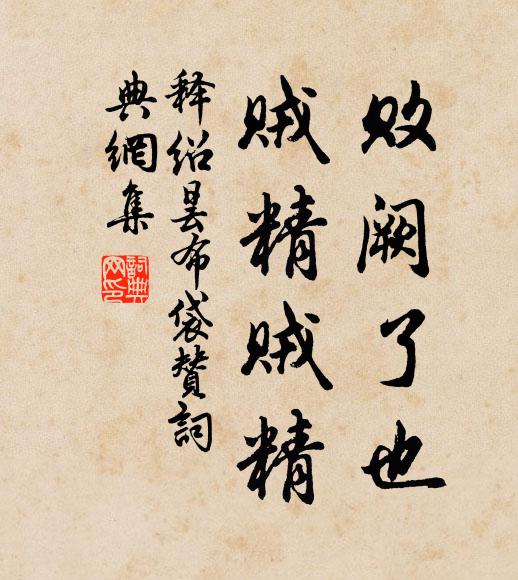 败阙了也
贼精贼精
释绍昙布袋赞词
典網集
詞典
网印